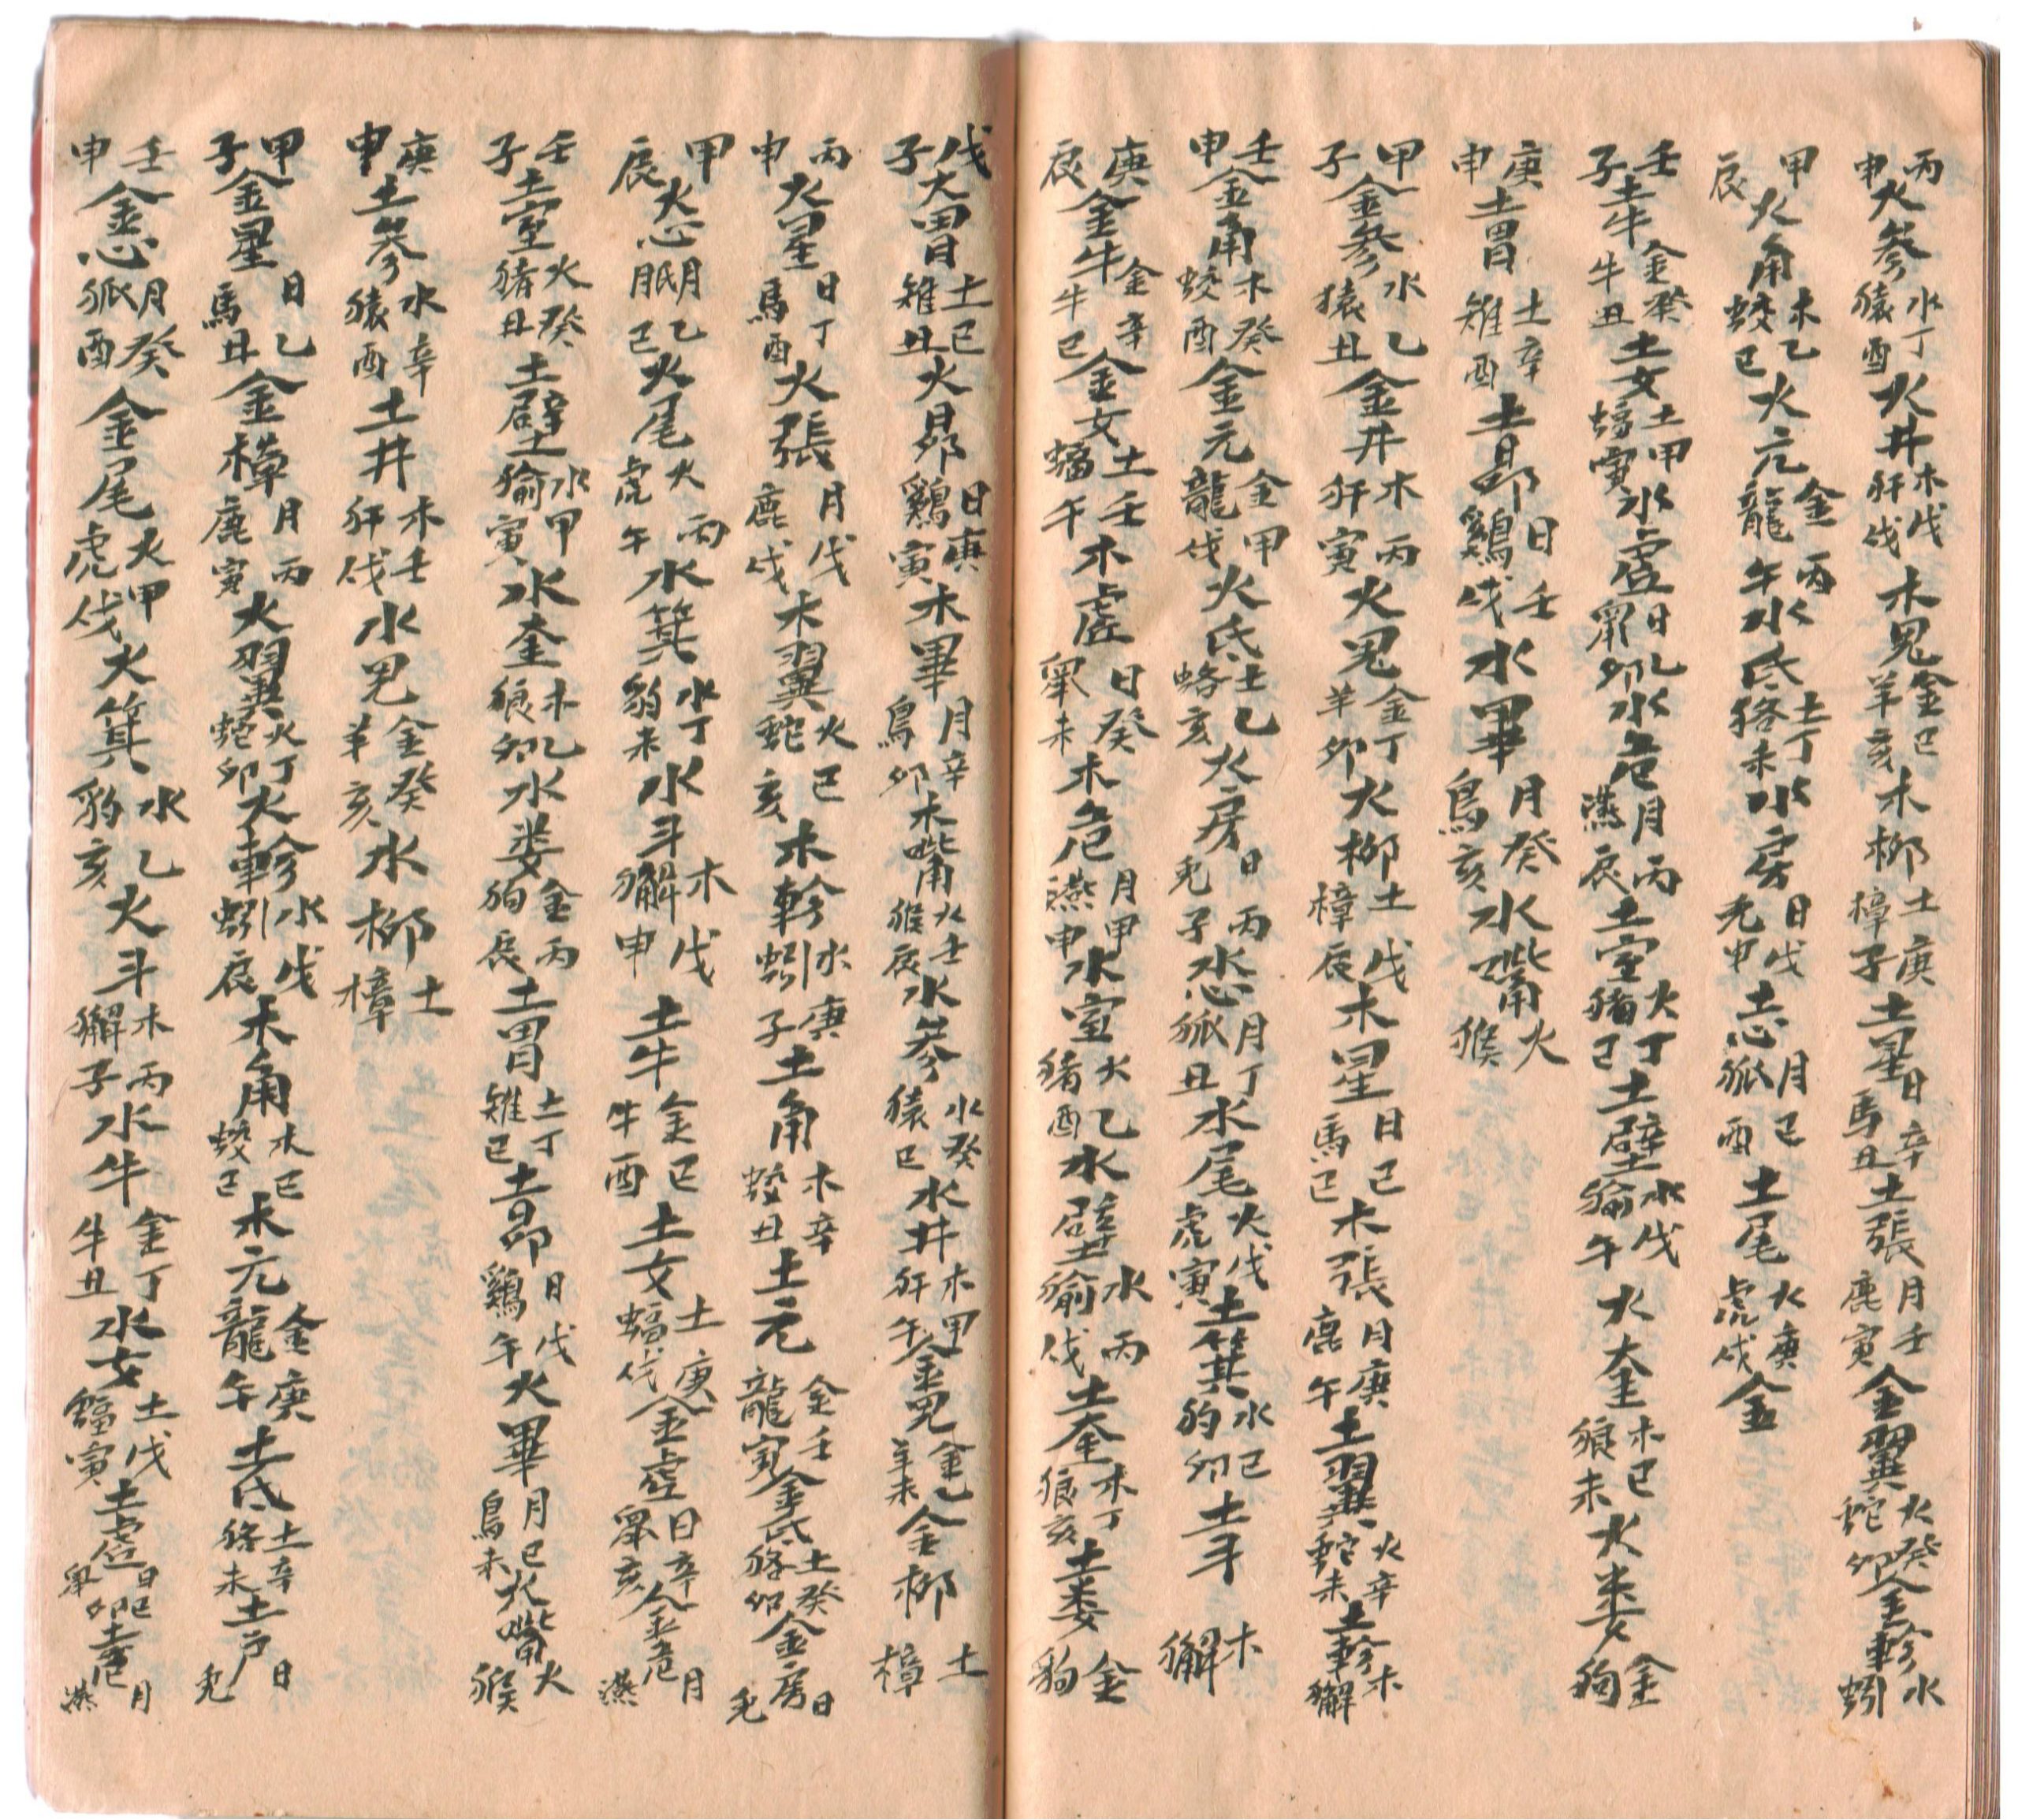 丙申火參水猿丁酉火井木犴戊戌木鬼金羊己亥木柳土樟庚子土星日馬辛丑土張月鹿壬寅金翼火蛇癸卯金軫水蚓
甲辰火角木蛟乙巳火亢金龍丙午水氐土狢丁未水房日兎戊申土心月狐己酉土尾火虎庚戌金
壬子土牛金牛癸丑土女土蝠甲寅水虛日鼠乙卯水危月燕丙辰土室火猪丁巳土壁水貐戊午火奎木狼己未火婁金狗
庚申土胃土雉辛酉土昴日鷄壬戌水畢月烏癸亥水觜火猴
甲子金參水猿乙丑金井木犴丙寅火鬼金羊丁卯火柳土樟戊辰木星日馬己巳木張月鹿庚午土翼火蛇辛未土軫木獬
壬申金角木蛟癸酉金亢金龍甲戌火氐土狢乙亥火房日兎丙子水心月狐丁丑水尾火虎戊寅土箕水豹己卯土斗木獬
庚辰金牛金牛辛巳金女土蝠壬午木虛日鼠癸未木危月燕甲申水室火猪乙酉水壁水貐丙戌土奎木狼丁亥土婁金狗
戊子火胃土雉己丑火昴日鷄庚寅木畢月烏辛卯木觜火猴壬辰水參水猿癸巳水井木犴甲午金鬼金羊乙未金柳土樟
丙申火星日馬丁酉火張月鹿戊戌木翼火蛇己亥木軫水蚓庚子土角木蛟辛丑土亢金龍壬寅金氐土狢癸卯金房日兎
甲辰火心月狐乙巳火尾火虎丙午水箕水豹丁未水斗木獬戊申土牛金牛己酉土女土蝠庚戌金虛日鼠辛亥金危月燕
壬子土室火猪癸丑土壁水貐甲寅水奎木狼乙卯水婁金狗丙辰土胃土雉丁巳土昴日鷄戊午火畢月烏己未火觜火猴
庚申土參水猿辛酉土井木犴壬戌水鬼金羊癸亥水柳土樟
甲子金星日馬乙丑金樟月鹿丙寅火翼火蛇丁卯火軫水蚓戊辰木角木蛟己巳木亢金龍庚午土氐土狢辛未土戶日兎
壬申金心月狐癸酉金尾火虎甲戌火箕水豹乙亥火斗木獬丙子水牛金牛丁丑水女土蝠戊寅土虛日鼠己卯土危月燕